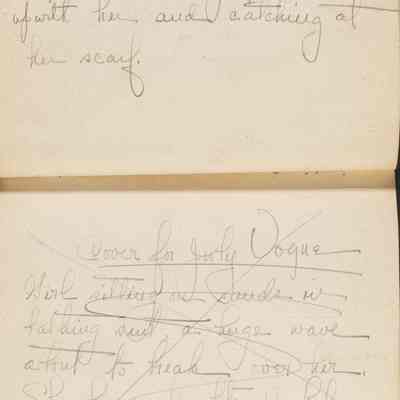 up with her and catching at
her scarf.
Cover for July Vogue
Girl sitting on sands in
bathing suit a huge wave
about to break over her.